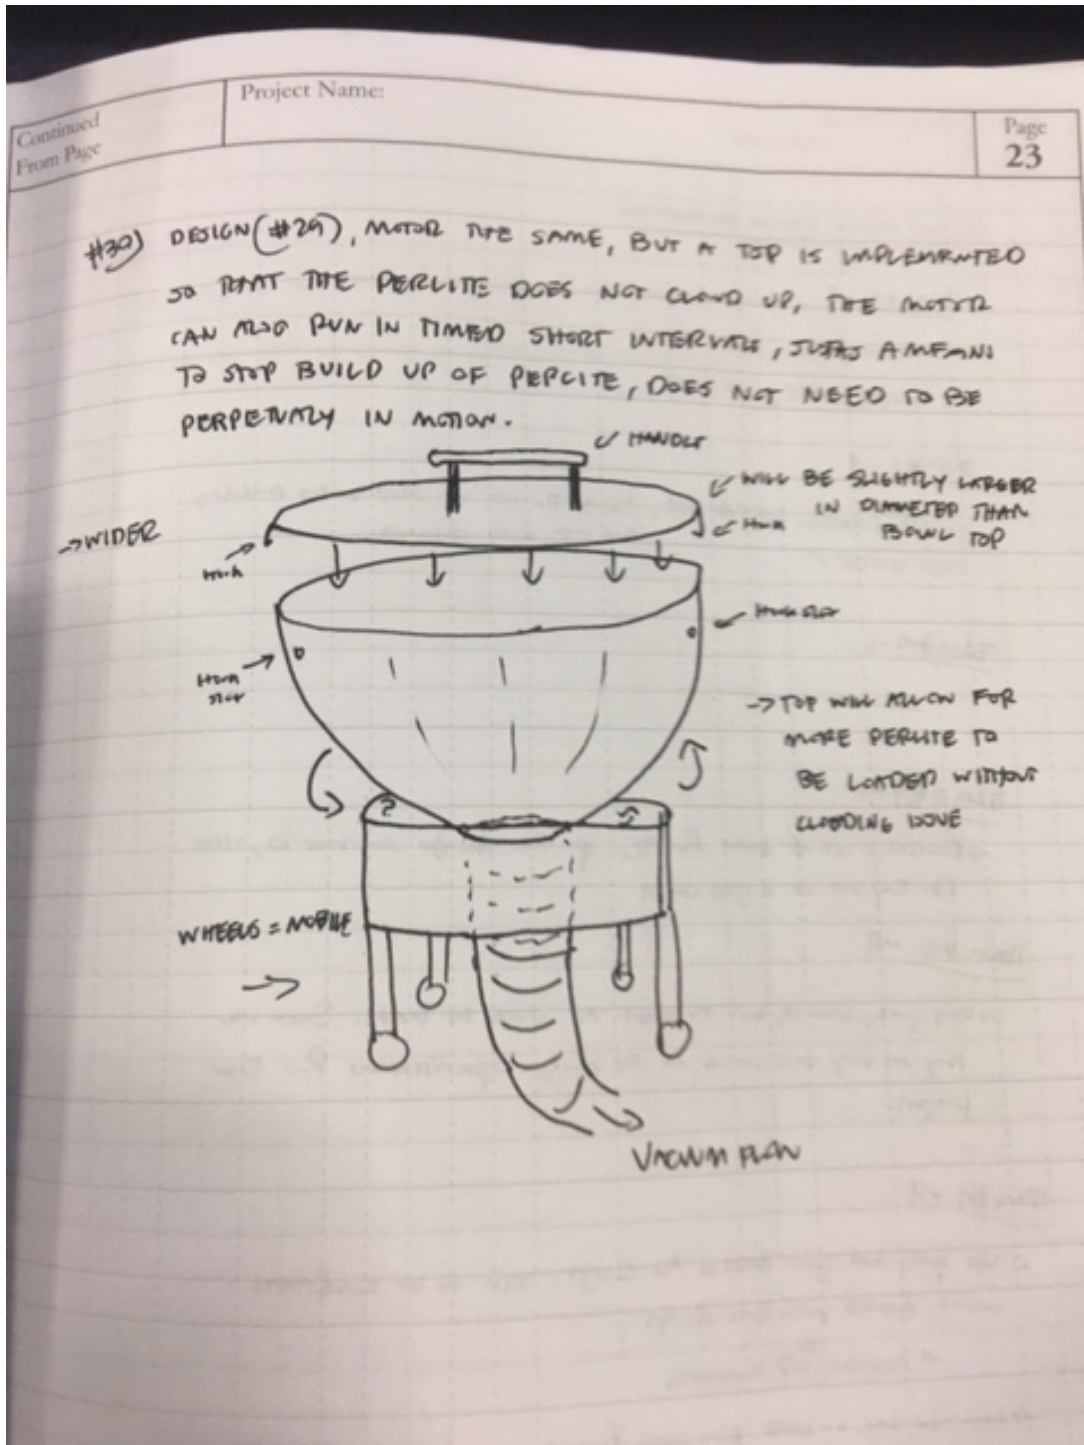 Continued
From Page
Project Name:
Page
23
#30) DESIGN (#29), MOTOR THE SAME, BUT A TOP IS IMPLEMENTED
SO THAT THE PERLITE DOES NOT CLOUD UP, THE MOTOR
CAN ALSO RUN IN TIMED SHORT INTERVALS, JUST AS A MEANS
TO STOP BUILD UP OF PERLITE, DOES NOT NEED TO BE
PERPETUALY IN MOTION.
HANDLE
WILL BE SLIGHTLY LARGER
IN DIAMETER THAN
BOWL TOP
HOOK
→ WIDER
HOOK
HOOK SLOT
HOOK
SLOT
→ TOP WILL ALLOW FOR
MORE PERLITE TO
BE LOADED WITHOUT
CLOUDING
WHEELS = MOBILE
VACUUM FLOW